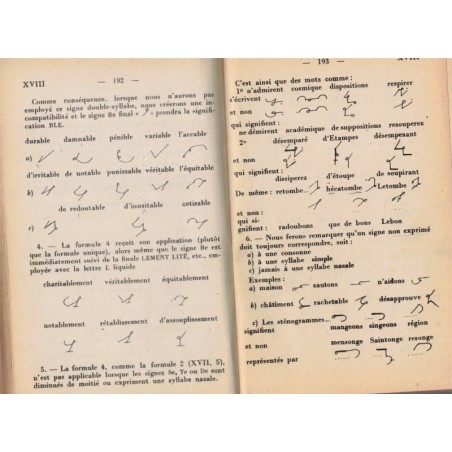 XVIII — 192 —
Comme conséquence, lorsque nous n'aurons pas
employé ce signe double-syllabe, nous créerons une in-
compatibilité et le signe Be final « » prendra la signifi-
cation BLE.
durable damnable pénible variable l'accable
a)
d'irritable de notable punissable véritable l'équitable
b)
de redoutable d'inusitable cotisable
c)
4. — La formule 4 reçoit son application (plutôt
que la formule unique), alors même que le signe Be est
immédiatement suivi de la finale LEMENT LITÉ, etc., em-
ployée avec la lettre L liquide
charitablement véritablement équitablement
notablement rétablissement d'assouplissement
5. — La formule 4, comme la formule 2 (XVII, 5),
n'est pas applicable lorsque les signes Se, Te ou De sont
diminués de moitié ou expriment une syllabe nasale.
— 193 — XVIII
C'est ainsi que des mots comme :
1º n'admirent cosmique dispositions respirer
s'écrivent
et non
qui signifient :
ne démirent académique de suppositions resouperez
2º désemparé d'Etampes désempesant
et non
qui signifient :
dissiperez d'étoupe de soupirant
De même : retombe hécatombe Letombe
et non :
qui si-
gnifient : radoubons que de bons Lebon
6. — Nous ferons remarquer qu'un signe non exprimé
doit toujours correspondre, soit :
a) à une consonne
b) à une syllabe simple
c) jamais à une syllabe nasale
Exemples :
a) maison sautons n'aidons
b) châtiment rachetable désapprouve
c) Les sténogrammes
signifient mangeons singeons région
et non mensonge Saintonge resonge
représentés par